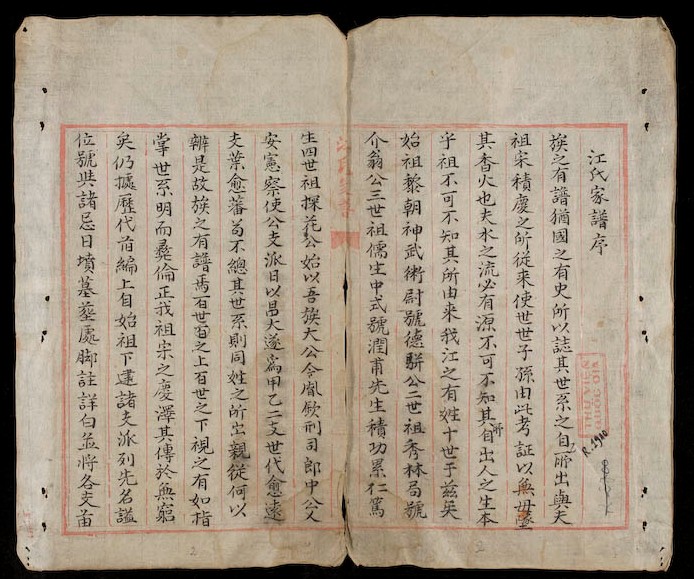 江氏家譜序
族之有譜猶國之有史所以誌其世系之自所出與夫
祖宗積慶之所從来使世世子孫由此考証以無毋墜
其香火也夫水之流必有源不可不知其所自出人之生本
乎祖不可不知其所由来我江之有姓十世于茲矣
始祖黎朝神武衛尉號德駢公二世祖秀林局號
介翁公三世祖儒生中式號潤甫先生積功累仁篤
生四世祖探花公始以吾族大公令胤欽刑司郎中公父
安憲察使公支派日以昌大遂爲甲乙二支世代愈遠
支葉愈蕃苟不總其世系則同姓之所出親從何以
辨是故族之有譜焉百世之上百世之下視之有如指
掌世系明而彝倫正我祖宗之慶澤其傳於無窮
矣仍據歷代首編上自始祖下逮諸支派列先名謚
位號與諸忌日墳墓塟處脚註詳白並將各支首
江氏家譜
THƯ VIỆN
QUỐC GIA
R.5910
2
2